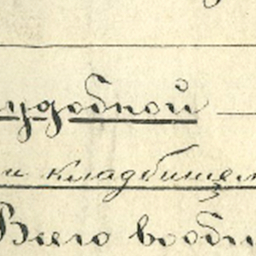 удобной
и кладбищем
Всего вообщ